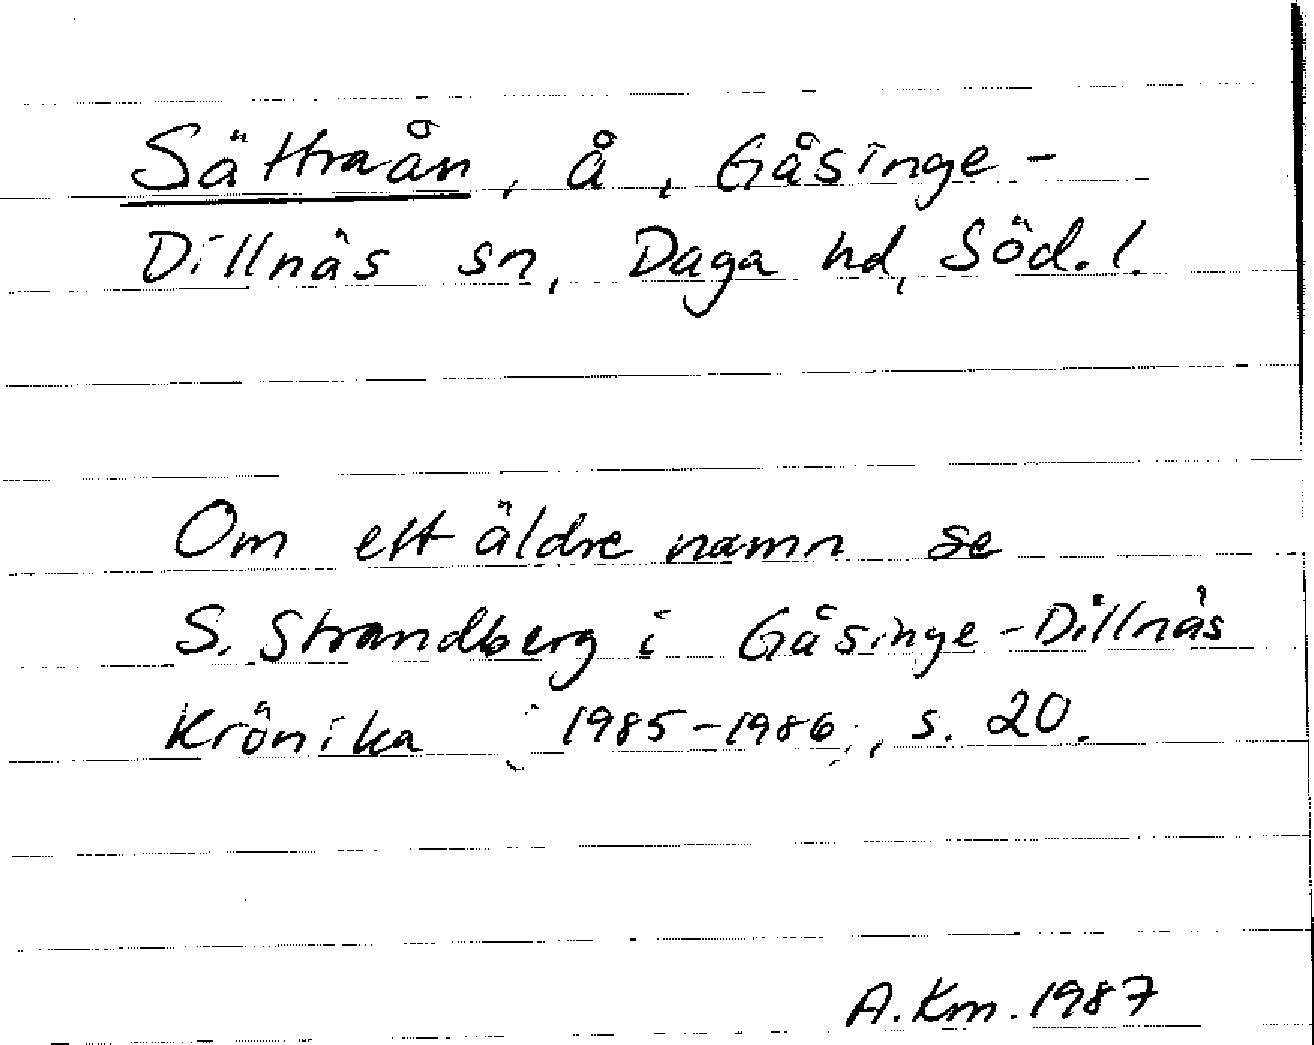 Sättraån, å, Gåsinge-
Dillnäs sn, Daga hd, Söd. l.
Om ett äldre namn se
S. Strandberg i Gåsinge-Dillnäs
Krönika (1985-1986), s. 20.
A.Km. 1987